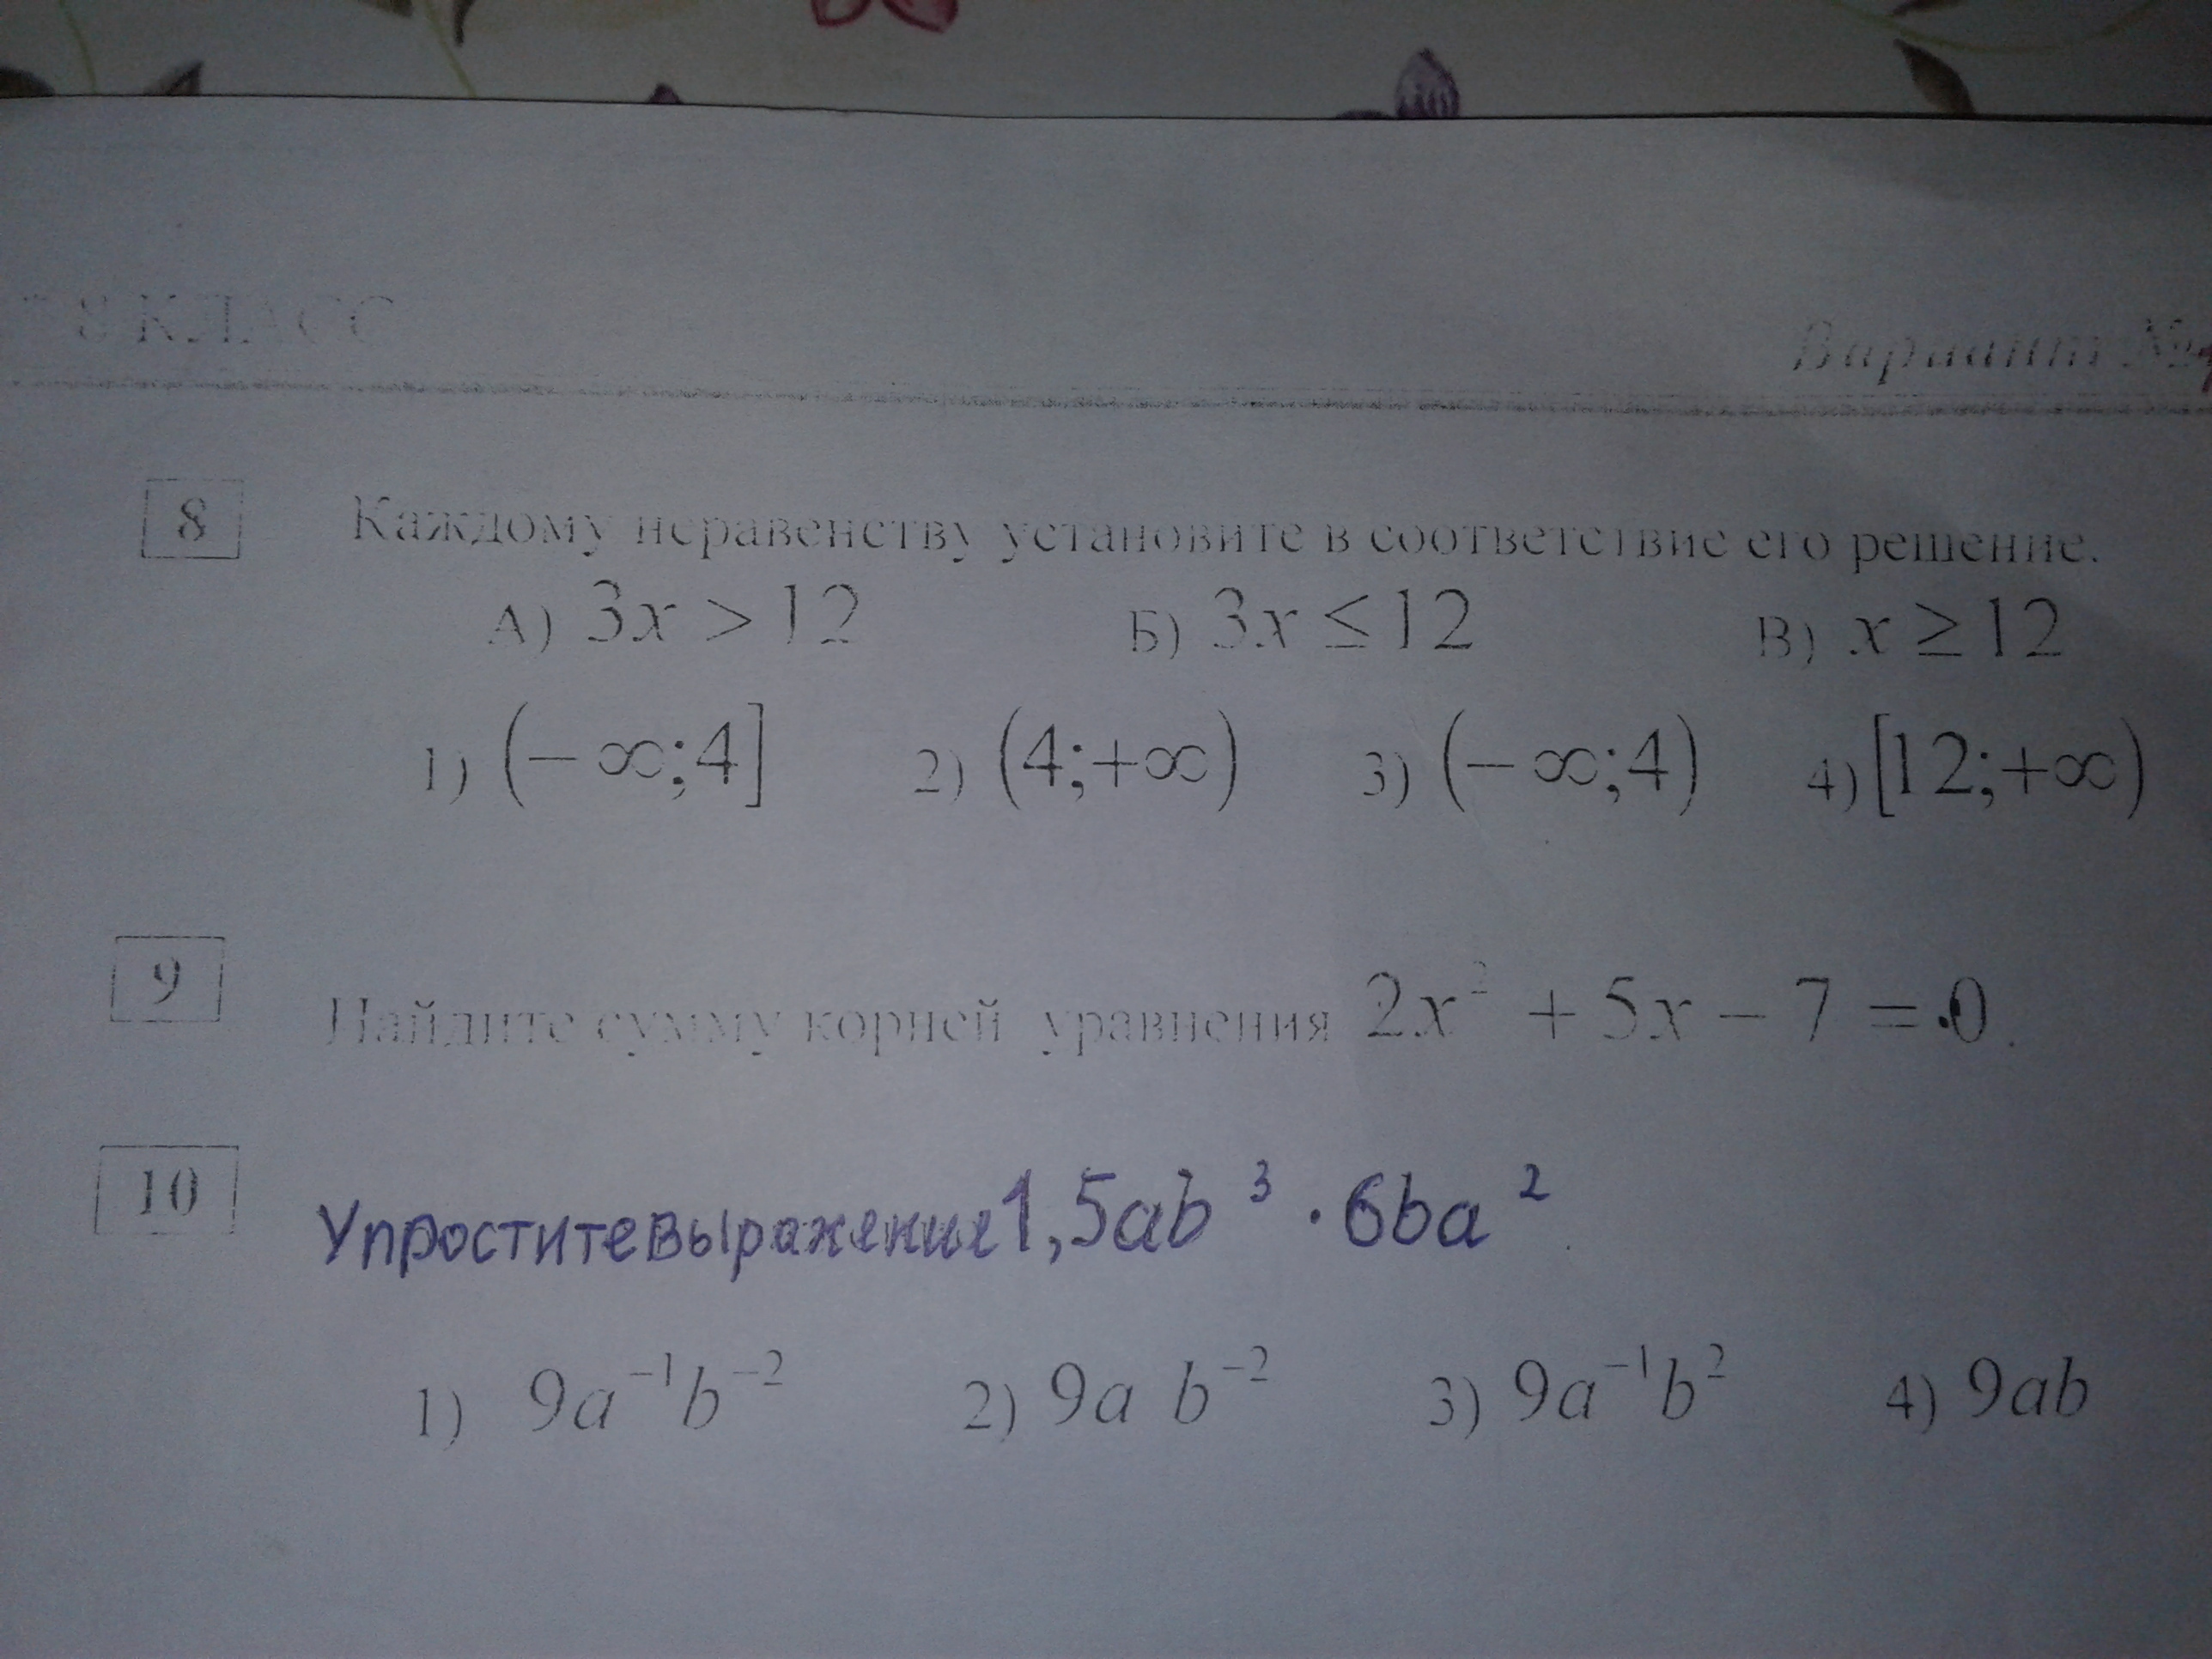 8 КЛАСС
Вариант №
8 Каждому неравенству установите в соответствие его решение.
А) 3x > 12 Б) 3x ≤ 12 В) x ≥ 12
1) (− ∞;4] 2) (4;+∞) 3) (− ∞;4) 4) [12;+∞)
9 Найдите сумму корней уравнения 2x² + 5x − 7 = 0.
10 Упростите выражение 1,5ab³ · 6ba².
1) 9a⁻¹b⁻² 2) 9a b⁻² 3) 9a⁻¹b² 4) 9ab